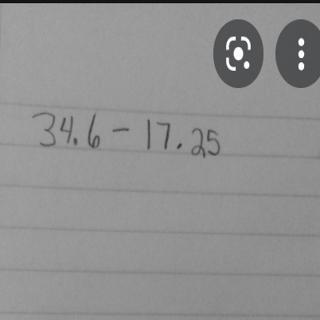 34.6 - 17.25